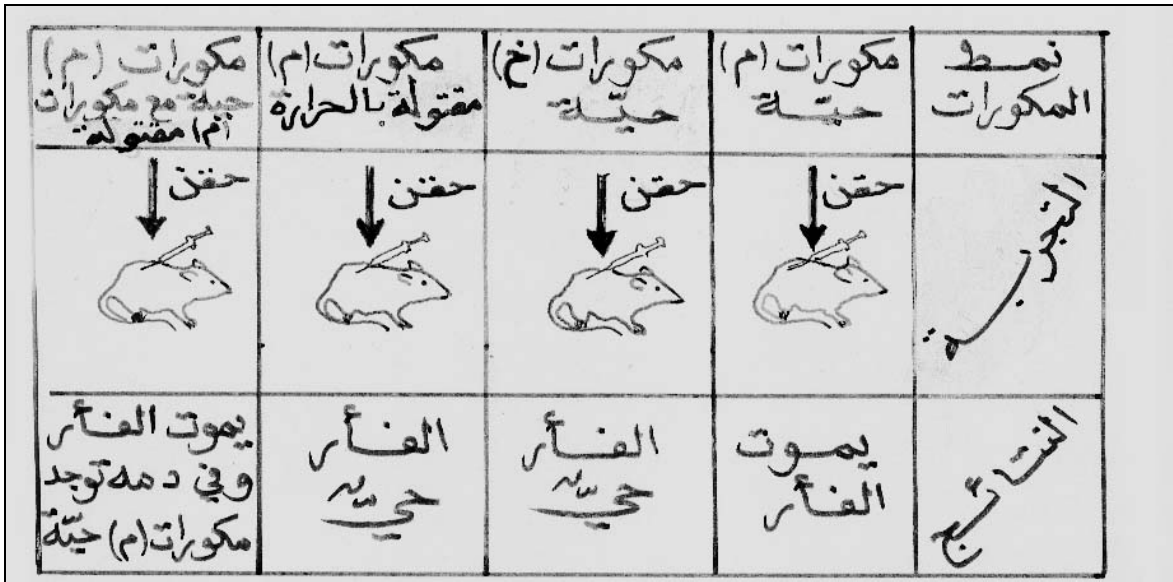 نمط
المكورات
مكورات (م)
حيّة
مكورات (خ)
حيّة
مكورات (م)
مقتولة بالحرارة
مكورات (م)
حية مع مكورات
(م) مقتولة
التجربة
حقن
حقن
حقن
حقن
النتائج
يموت
الفأر
الفأر
حيّ
الفأر
حيّ
يموت الفأر
وفي دمه توجد
مكورات (م) حيّة